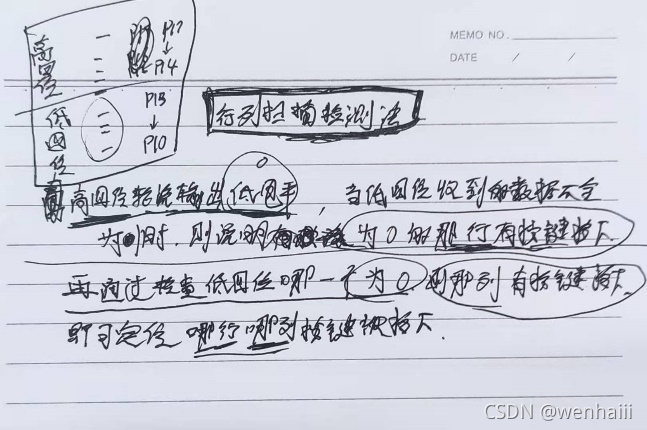 MEMO NO.
DATE / /
高四位 P17
↓
P14
低四位 P13
↓
P10
行列扫描检测法
0
高四位轮流输出低电平，当低四位收到的数据不全
为1时，则说明 为0的那行有按键按下
再通过检查低四位哪一个为0 则那列有按键按下
即可定位哪行哪列按键被按下.
CSDN @wenhaiii